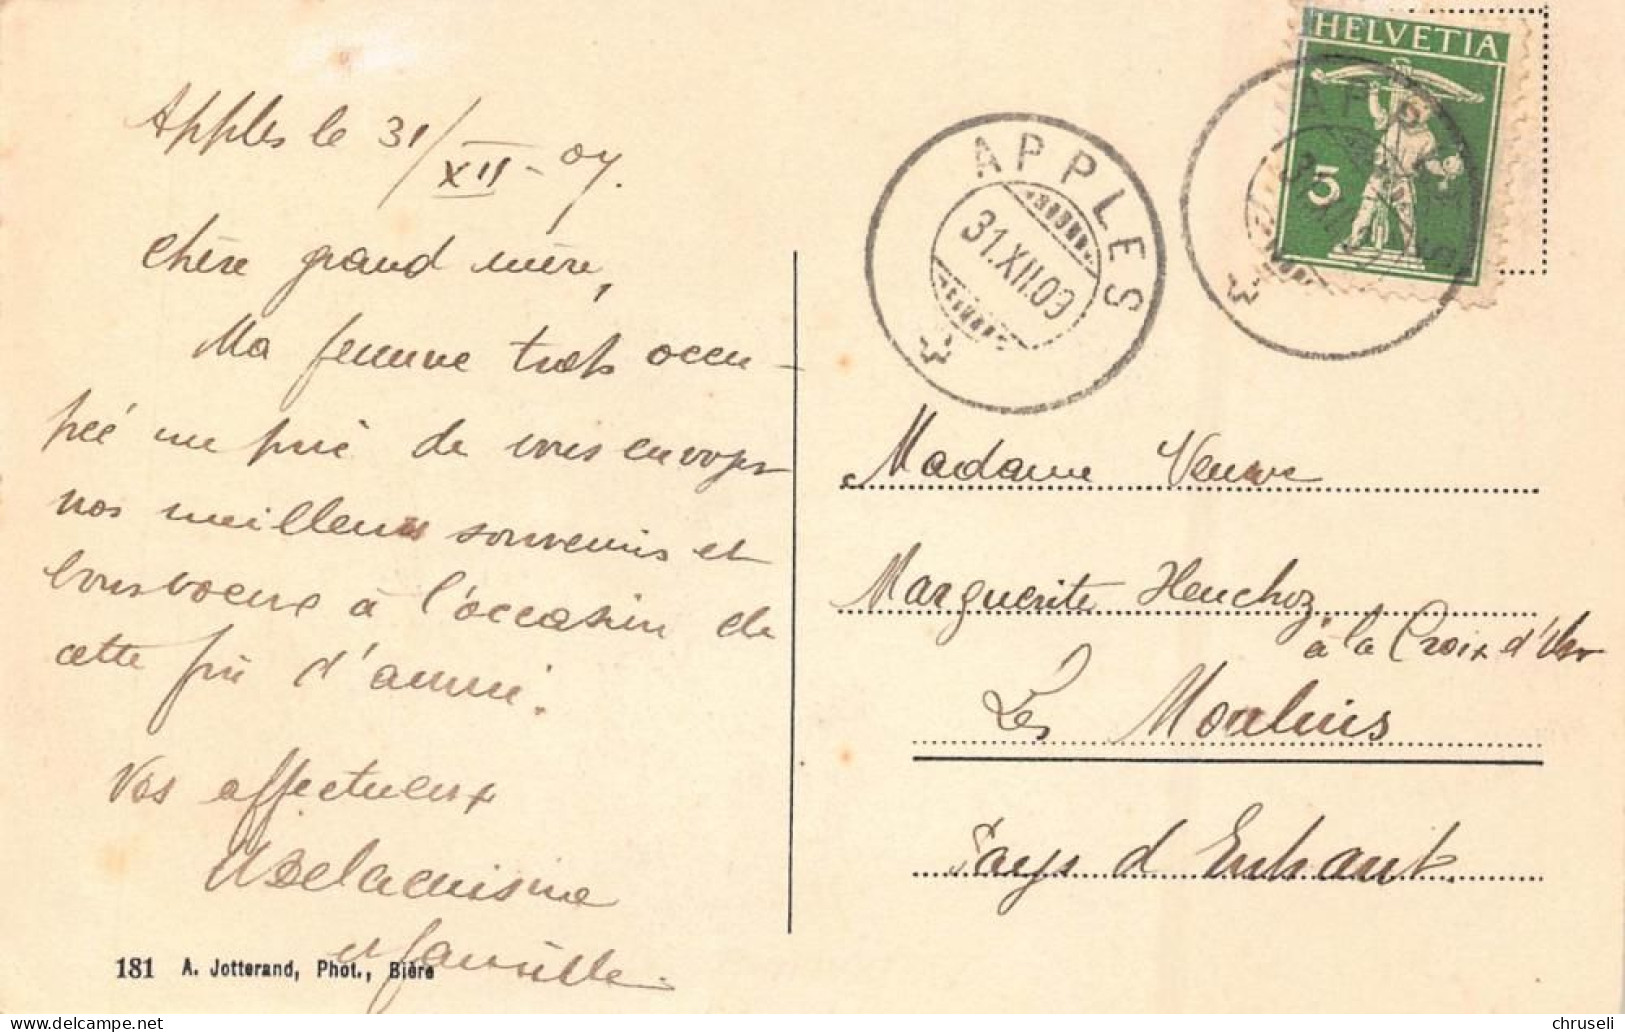 Apples le 31/XII - 09.
Chère grand mère,
Ma femme très occu-
pée me prie de vous envoyer
nos meilleurs souvenirs et
bons voeux à l'occasion de
cette fin d'année.
Vos affectueux
Delacuisine
et famille.
181 A. Jotterand, Phot., Bière
HELVETIA
5
APPLES
31.XII.09
APPLES
Madame Veuve
Marguerite Henchoz
à la Croix d'
Les Moulins
Pays d Enhaut.
chruseli